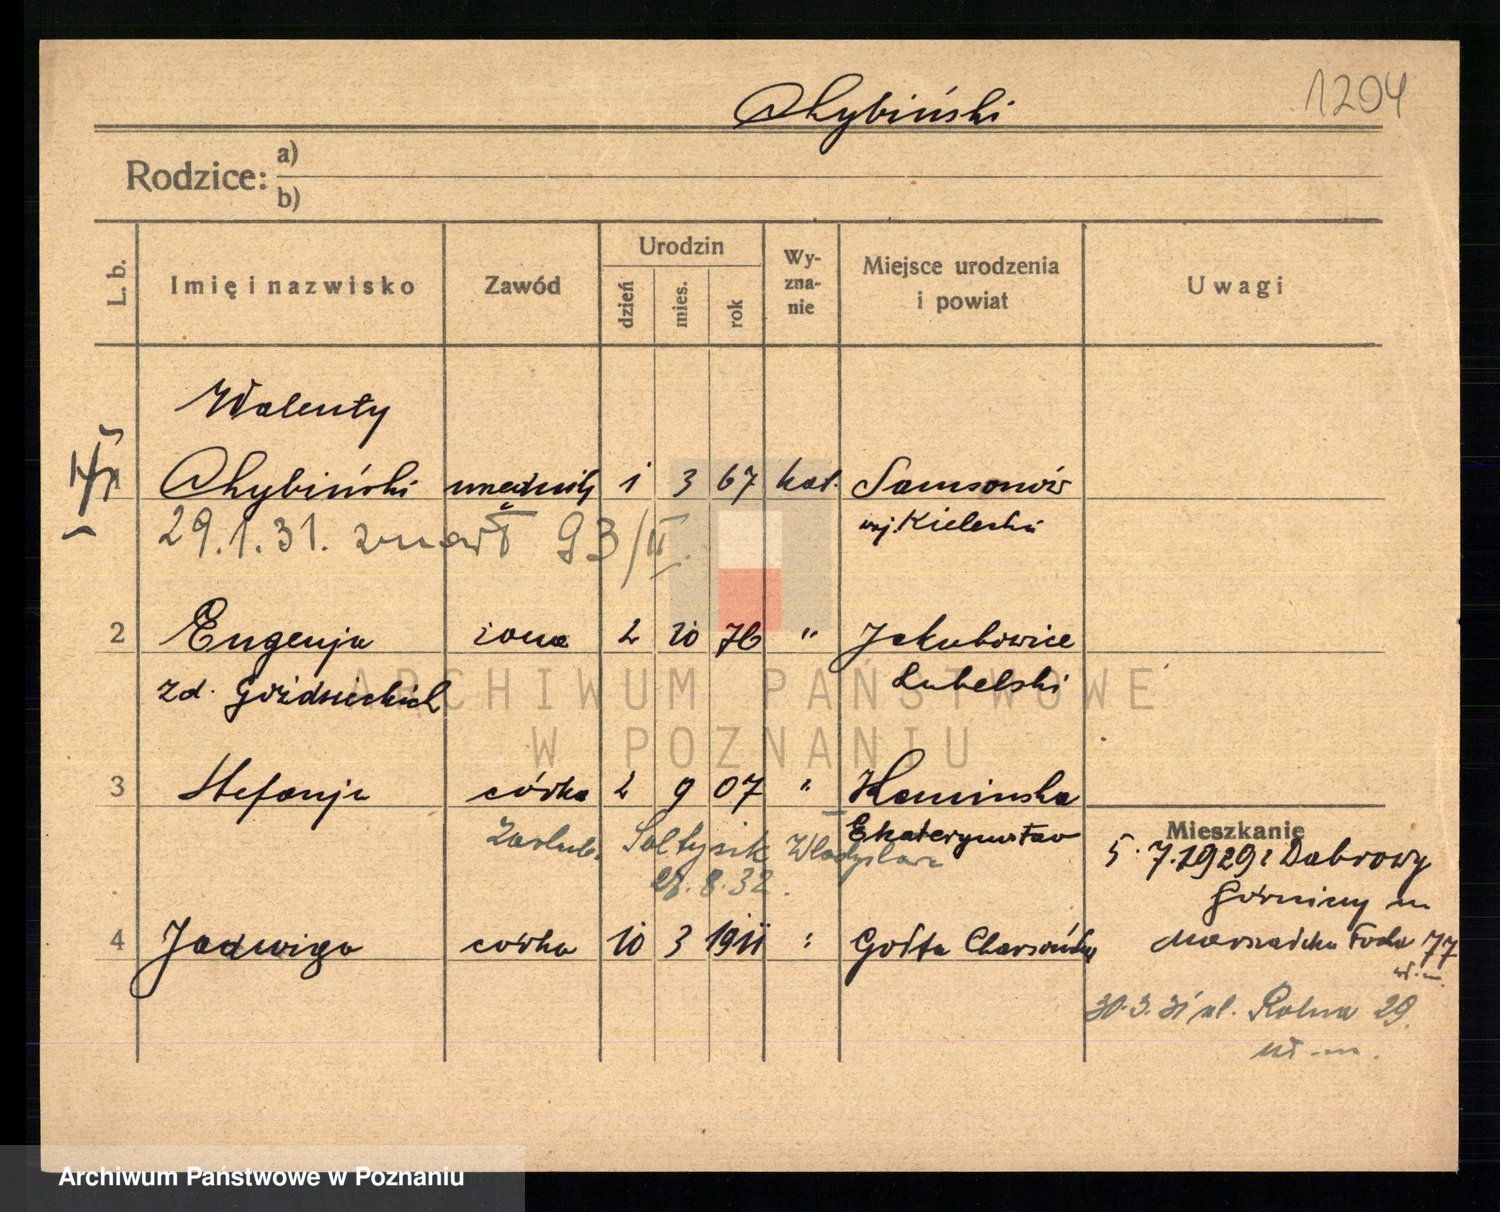 Chybiński
1204
Rodzice: a)
b)
L. b.
Imię i nazwisko
Zawód
Urodzin
dzień
mies.
rok
Wy-
zna-
nie
Miejsce urodzenia
i powiat
Uwagi
Walenty
Chybiński urzędnik 1 3 67 kat. Samsonów
woj. Kielecki
29.1.31. zmarł 93/II.
2 Eugenja żona 2 10 76 " Jakubowice
zd. Goździeckich Lubelski
3 Stefanja córka 2 9 07 " Kaminska
Ekaterynosław
Zaślub. Sołtysik Władysław
27.8.32.
Mieszkanie
5.7.1929 z Dąbrowy
Górniczej
4 Jadwiga córka 10 3 1911 :
Focha 77
30.3.31 ul. Rolna 29.
ARCHIWUM PAŃSTWOWE
W POZNANIU
Archiwum Państwowe w Poznaniu